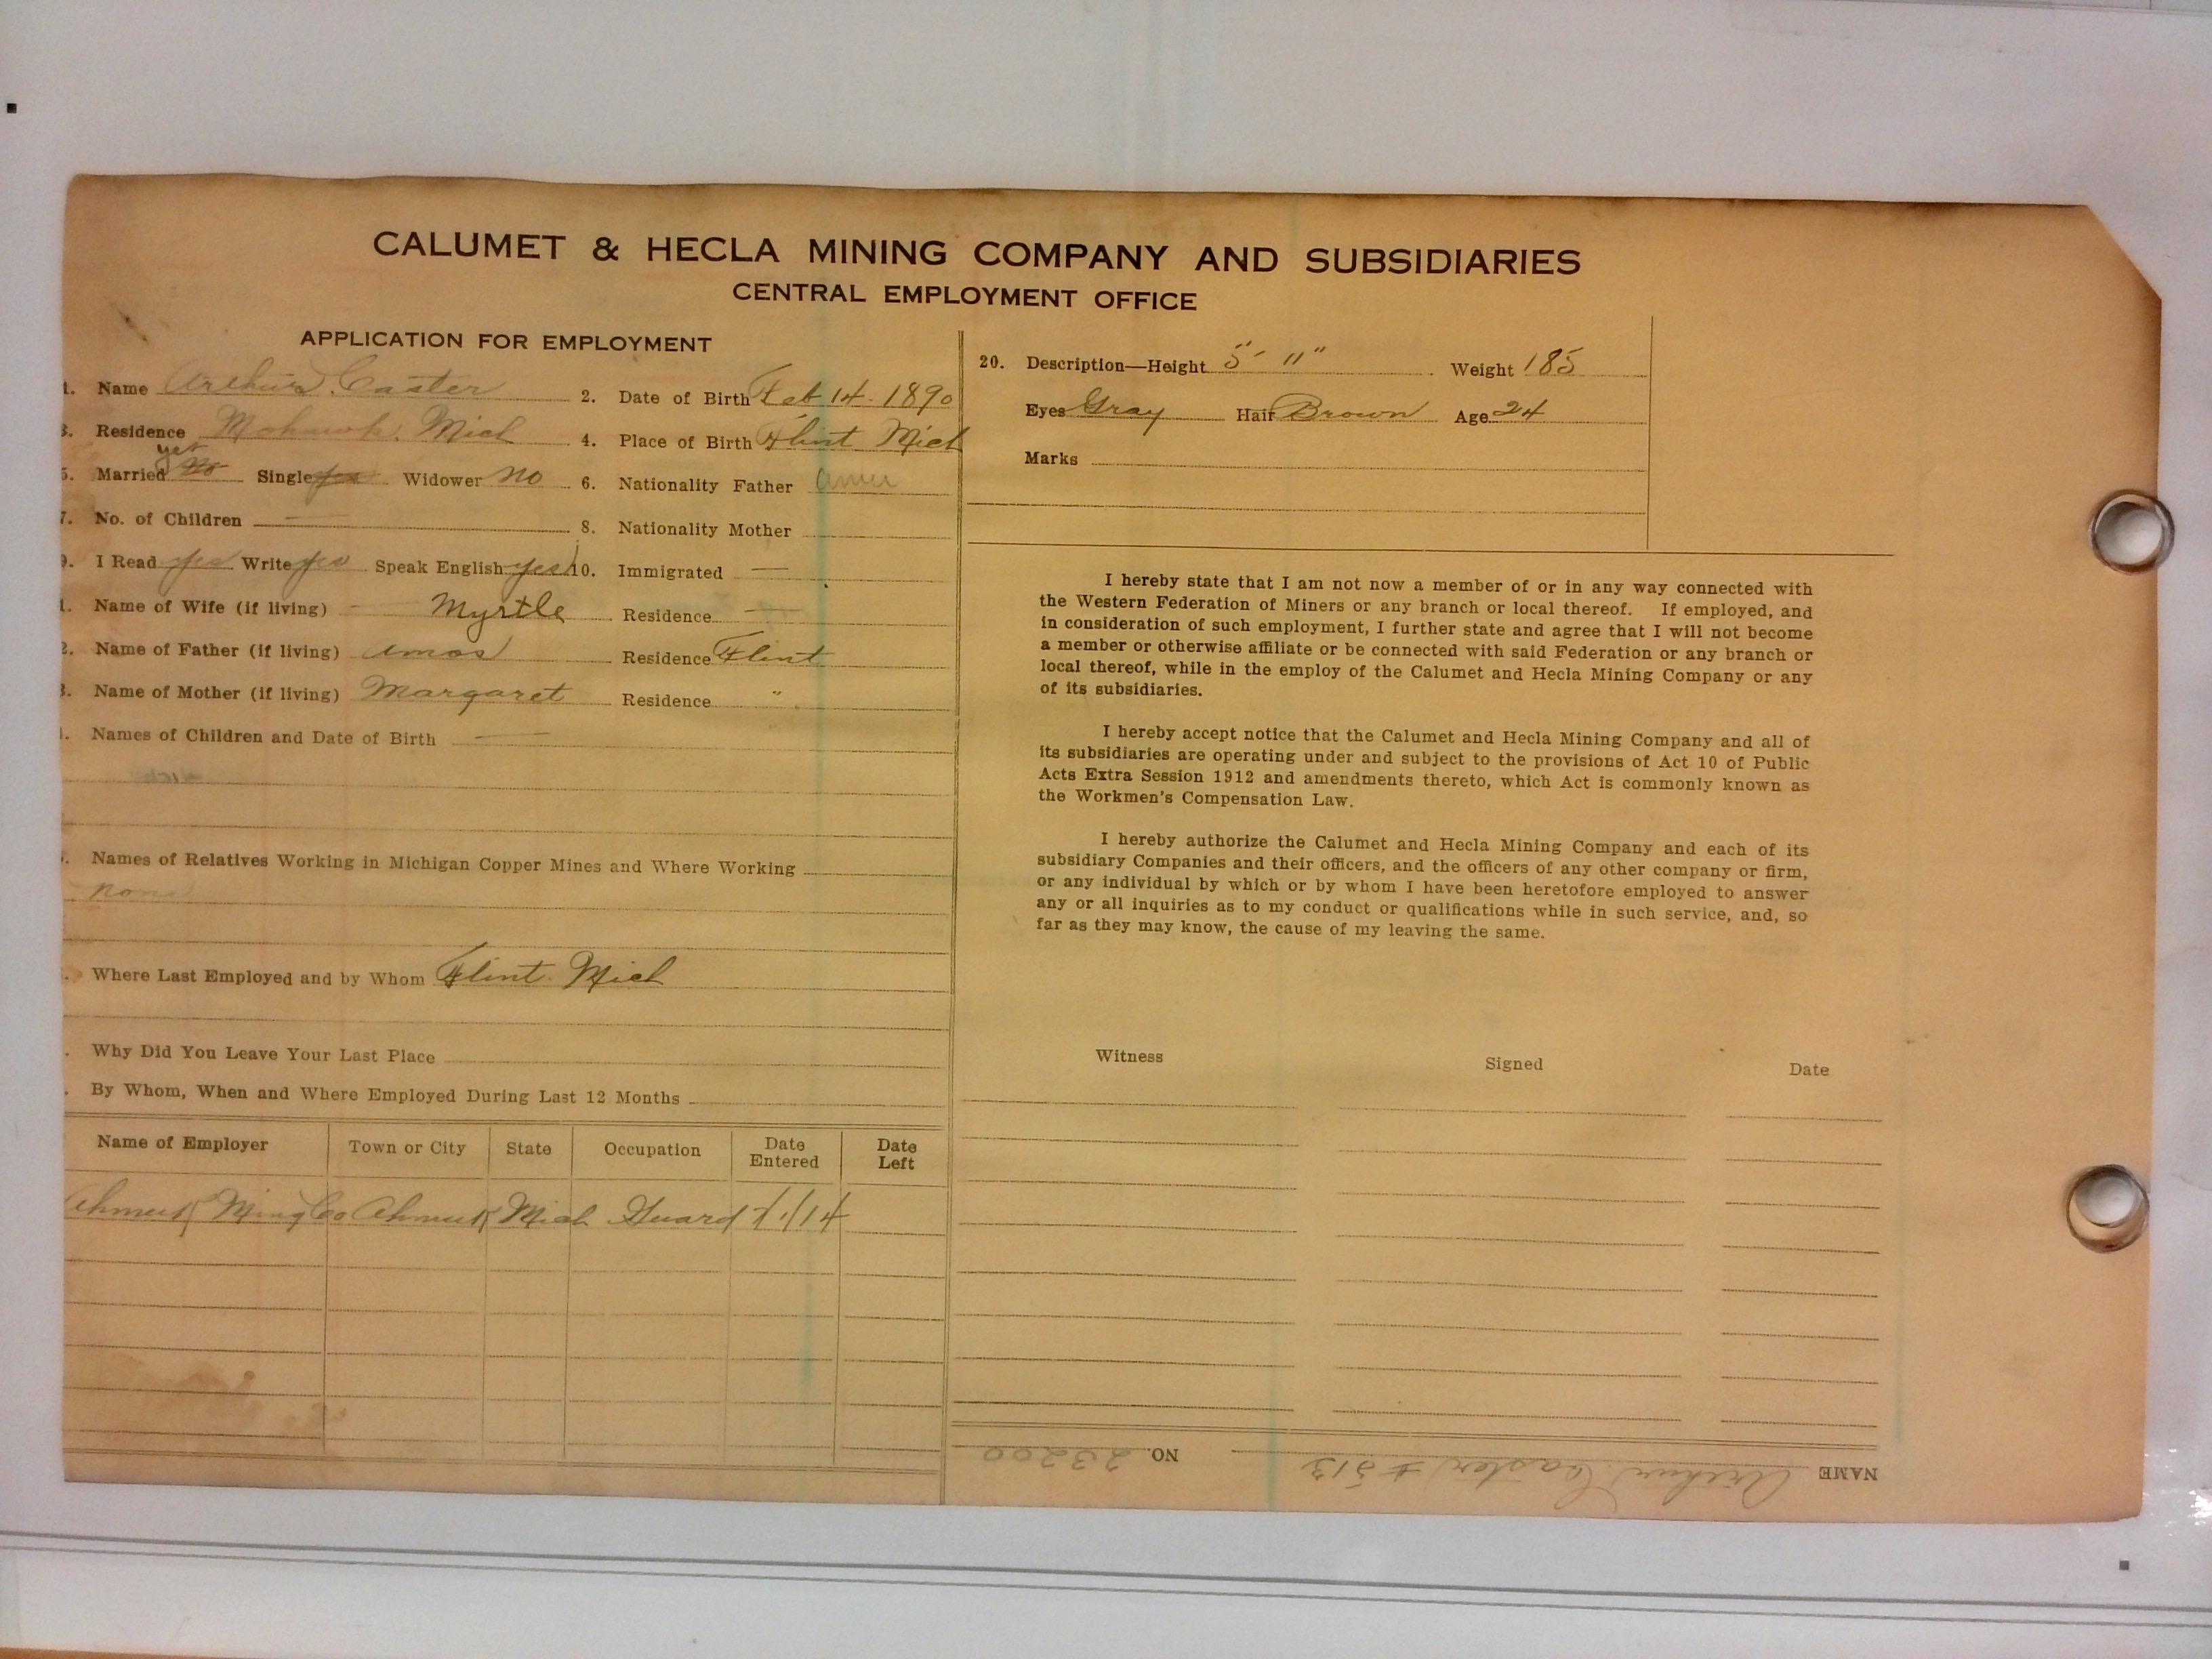 CALUMET & HECLA MINING COMPANY AND SUBSIDIARIES
CENTRAL EMPLOYMENT OFFICE
APPLICATION FOR EMPLOYMENT
1. Name Arthur Caster 2. Date of Birth Feb 14 - 1890
3. Residence Mohawk, Mich 4. Place of Birth Flint Mich
yes
5. Married No Single yes Widower No 6. Nationality Father Amer
7. No. of Children — 8. Nationality Mother
9. I Read yes Write yes Speak English yes 10. Immigrated —
1. Name of Wife (if living) — Myrtle Residence —
2. Name of Father (if living) Amos Residence Flint
3. Name of Mother (if living) Margaret Residence "
4. Names of Children and Date of Birth —
. Names of Relatives Working in Michigan Copper Mines and Where Working
none
. Where Last Employed and by Whom Flint Mich
. Why Did You Leave Your Last Place
. By Whom, When and Where Employed During Last 12 Months
Name of Employer Town or City State Occupation Date Entered Date Left
Ahmeek Ming Co Ahmeek Mich Guard /14
20. Description—Height 5' - 11" Weight 185
Eyes Gray Hair Brown Age 24
Marks
I hereby state that I am not now a member of or in any way connected with
the Western Federation of Miners or any branch or local thereof. If employed, and
in consideration of such employment, I further state and agree that I will not become
a member or otherwise affiliate or be connected with said Federation or any branch or
local thereof, while in the employ of the Calumet and Hecla Mining Company or any
of its subsidiaries.
I hereby accept notice that the Calumet and Hecla Mining Company and all of
its subsidiaries are operating under and subject to the provisions of Act 10 of Public
Acts Extra Session 1912 and amendments thereto, which Act is commonly known as
the Workmen's Compensation Law.
I hereby authorize the Calumet and Hecla Mining Company and each of its
subsidiary Companies and their officers, and the officers of any other company or firm,
or any individual by which or by whom I have been heretofore employed to answer
any or all inquiries as to my conduct or qualifications while in such service, and, so
far as they may know, the cause of my leaving the same.
Witness Signed Date
NAME Arthur Caster # 513 NO. 23200